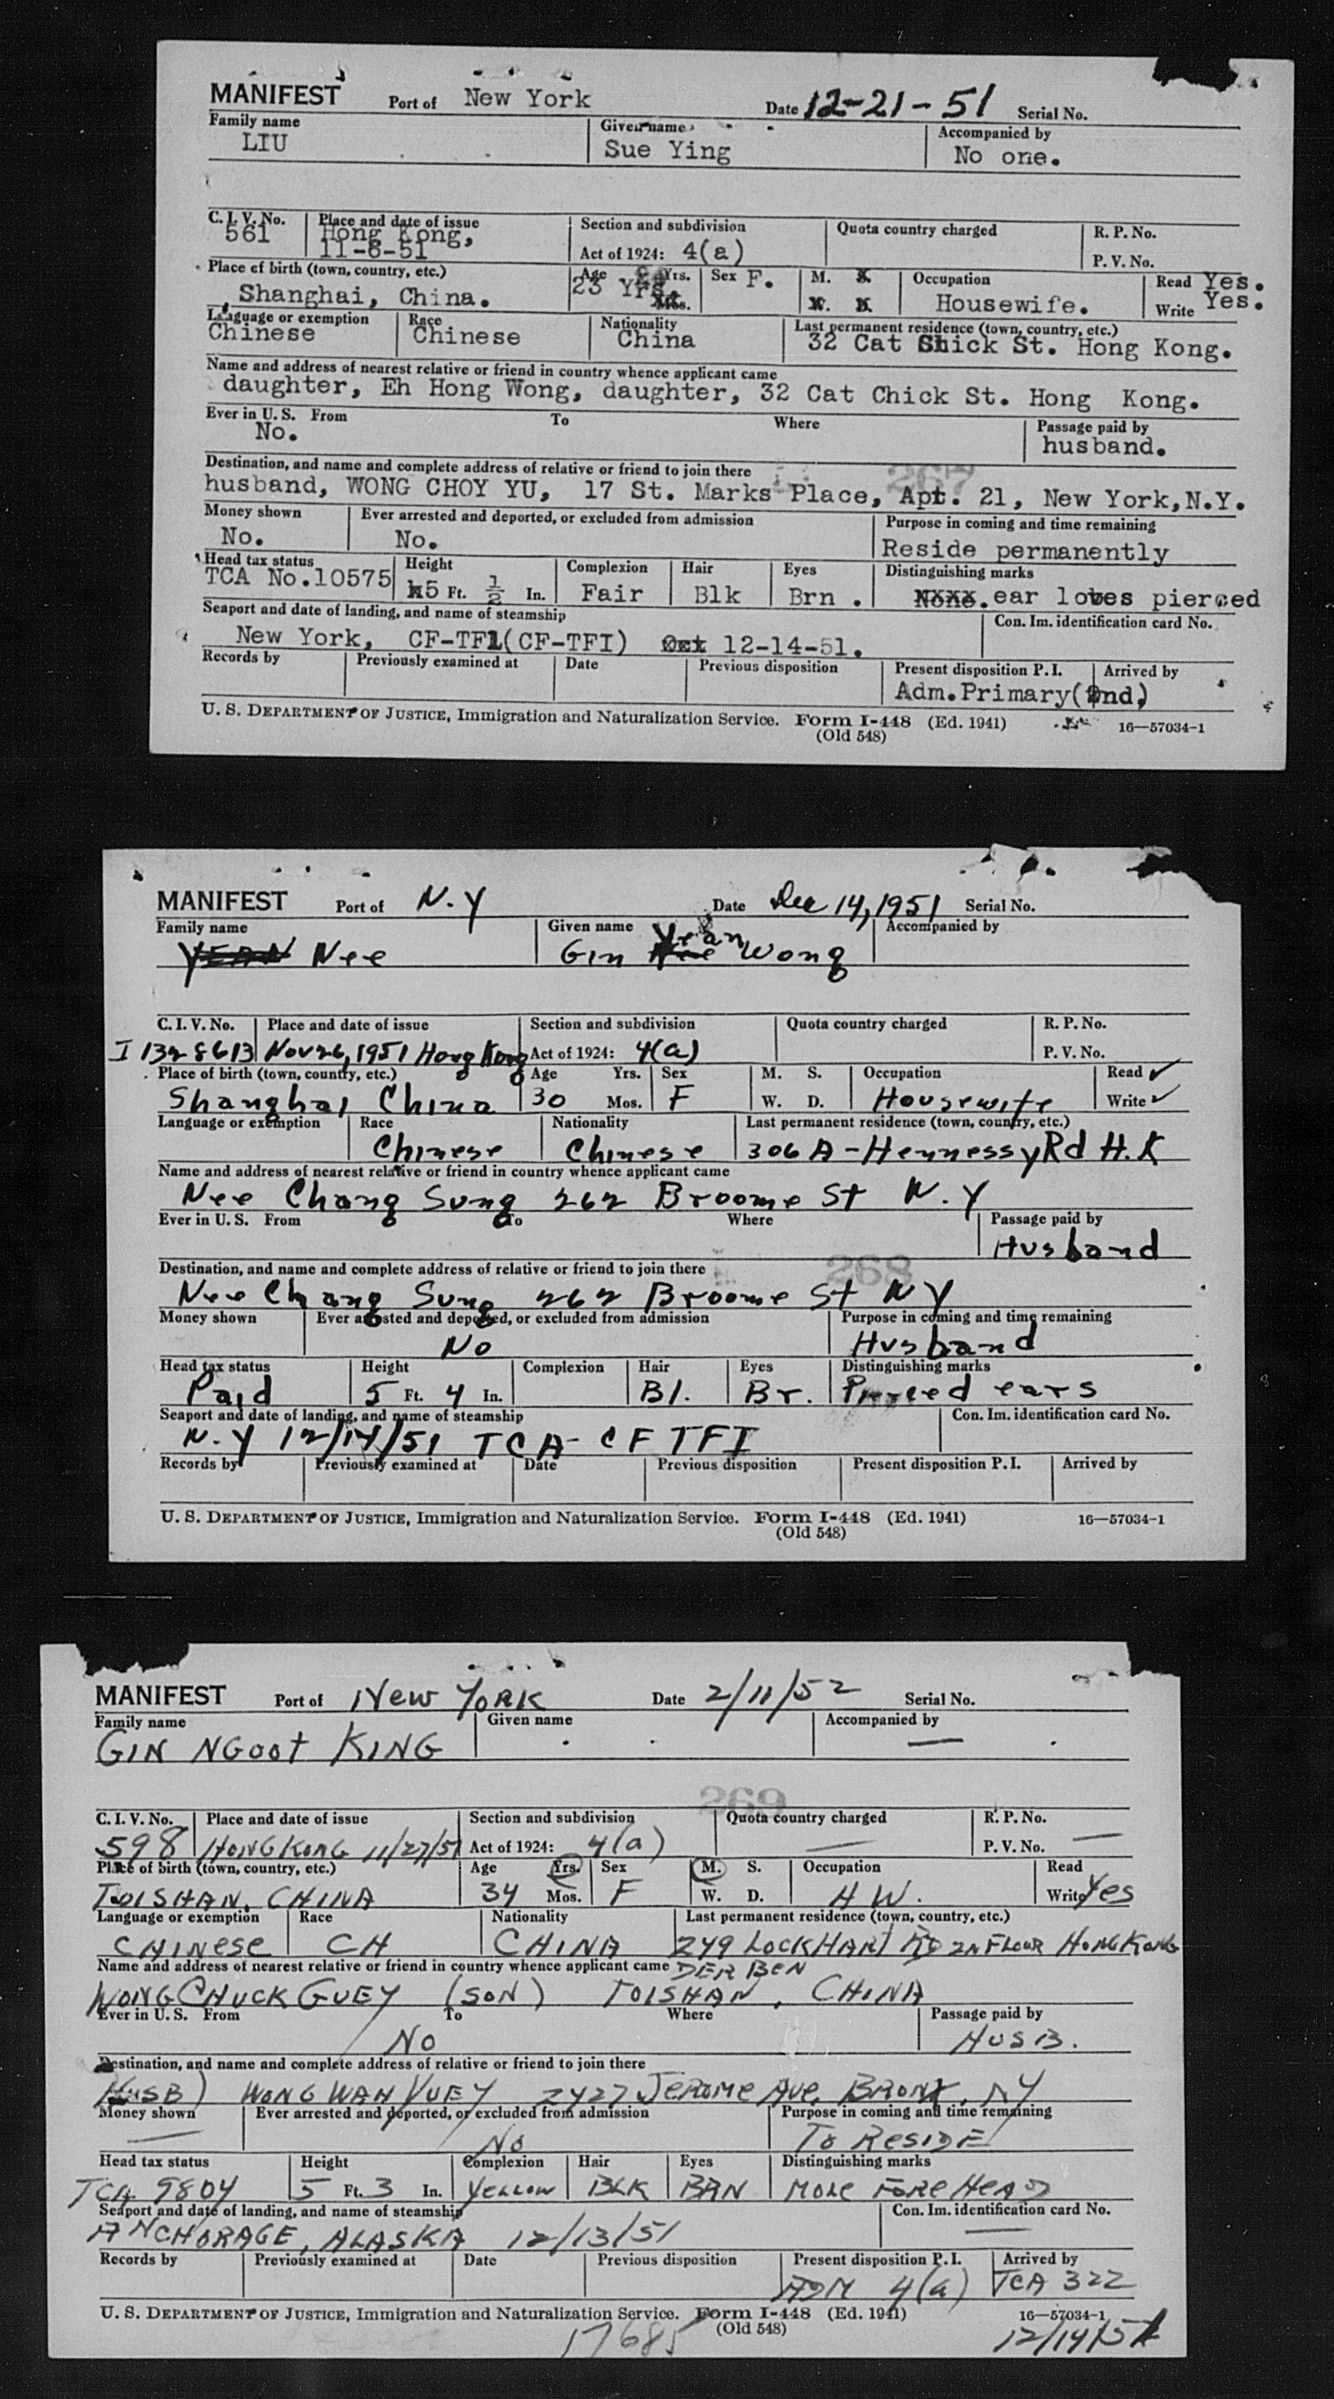 MANIFEST Port of New York Date 12-21-51 Serial No.
Family name Given name Accompanied by
LIU Sue Ying No one.
C. I. V. No. Place and date of issue Section and subdivision Quota country charged R. P. No.
561 Hong Kong,
11-6-51 Act of 1924: 4(a) P. V. No.
Place of birth (town, country, etc.) Age Yrs. Sex F. M. S. Occupation Read Yes.
Shanghai, China. 23 Yrs. Mos. W. D. Housewife. Write Yes.
Language or exemption Race Nationality Last permanent residence (town, country, etc.)
Chinese Chinese China 32 Cat Chick St. Hong Kong.
Name and address of nearest relative or friend in country whence applicant came
daughter, Eh Hong Wong, daughter, 32 Cat Chick St. Hong Kong.
Ever in U. S. From To Where Passage paid by
No. husband.
Destination, and name and complete address of relative or friend to join there 267
husband, WONG CHOY YU, 17 St. Marks Place, Apt. 21, New York, N.Y.
Money shown Ever arrested and deported, or excluded from admission Purpose in coming and time remaining
No. No. Reside permanently
Head tax status Height Complexion Hair Eyes Distinguishing marks
TCA No.10575 5 Ft. 1/2 In. Fair Blk Brn . None. ear lobes pierced
Seaport and date of landing, and name of steamship Con. Im. identification card No.
New York, CF-TFI(CF-TFI) Oct 12-14-51.
Records by Previously examined at Date Previous disposition Present disposition P. I. Arrived by
Adm.Primary(2nd)
U. S. DEPARTMENT OF JUSTICE, Immigration and Naturalization Service. Form I-448 (Ed. 1941) 16—57034-1
(Old 548)
MANIFEST Port of N.Y Date Dec 14, 1951 Serial No.
Family name Given name Accompanied by
YEAN Nee Gin Nee Yean Wong
C. I. V. No. Place and date of issue Section and subdivision Quota country charged R. P. No.
I 1328613 Nov 26, 1951 Hong Kong Act of 1924: 4(a) P. V. No.
Place of birth (town, country, etc.) Age Yrs. Sex M. S. Occupation Read ✓
Shanghai China 30 Mos. F W. D. Housewife Write ✓
Language or exemption Race Nationality Last permanent residence (town, country, etc.)
Chinese Chinese 306 A-Hennessy Rd H.K
Name and address of nearest relative or friend in country whence applicant came
Nee Chang Sung 262 Broome St N.Y
Ever in U. S. From To Where Passage paid by
Husband
Destination, and name and complete address of relative or friend to join there 268
Nee Chang Sung 262 Broome St NY
Money shown Ever arrested and deported, or excluded from admission Purpose in coming and time remaining
No Husband
Head tax status Height Complexion Hair Eyes Distinguishing marks
Paid 5 Ft. 4 In. Bl. Br. Pierced ears
Seaport and date of landing, and name of steamship Con. Im. identification card No.
N.Y 12/14/51 TCA-CFTFI
Records by Previously examined at Date Previous disposition Present disposition P. I. Arrived by
U. S. DEPARTMENT OF JUSTICE, Immigration and Naturalization Service. Form I-448 (Ed. 1941) 16—57034-1
(Old 548)
MANIFEST Port of New YORK Date 2/11/52 Serial No.
Family name Given name Accompanied by
GIN NGOOT KING —
269
C. I. V. No. Place and date of issue Section and subdivision Quota country charged R. P. No.
598 HONG KONG 11/27/51 Act of 1924: 4(a) — P. V. No. —
Place of birth (town, country, etc.) Age Yrs. Sex M. S. Occupation Read
TOISHAN, CHINA 34 Mos. F W. D. H W. Write Yes
Language or exemption Race Nationality Last permanent residence (town, country, etc.)
CHINese CH CHINA 249 LOCKHART RD 2N FLOUR HONG KONG
Name and address of nearest relative or friend in country whence applicant came DER BEN
WONG CHUCK GUEY (SON) TOISHAN, CHINA
Ever in U. S. From To Where Passage paid by
NO HUSB.
Destination, and name and complete address of relative or friend to join there
(HUSB) WONG WAH YUEY 2427 JEROME Ave. BRONX, NY
Money shown Ever arrested and deported, or excluded from admission Purpose in coming and time remaining
— No To RESIDE
Head tax status Height Complexion Hair Eyes Distinguishing marks
TCA 9804 5 Ft. 3 In. YELLOW BLK BRN MOLE FOREHEAD
Seaport and date of landing, and name of steamship Con. Im. identification card No.
ANCHORAGE, ALASKA 12/13/51 —
Records by Previously examined at Date Previous disposition Present disposition P. I. Arrived by
ADM 4(a) TCA 322
U. S. DEPARTMENT OF JUSTICE, Immigration and Naturalization Service. Form I-448 (Ed. 1941) 16—57034-1
17685 (Old 548) 12/14/51